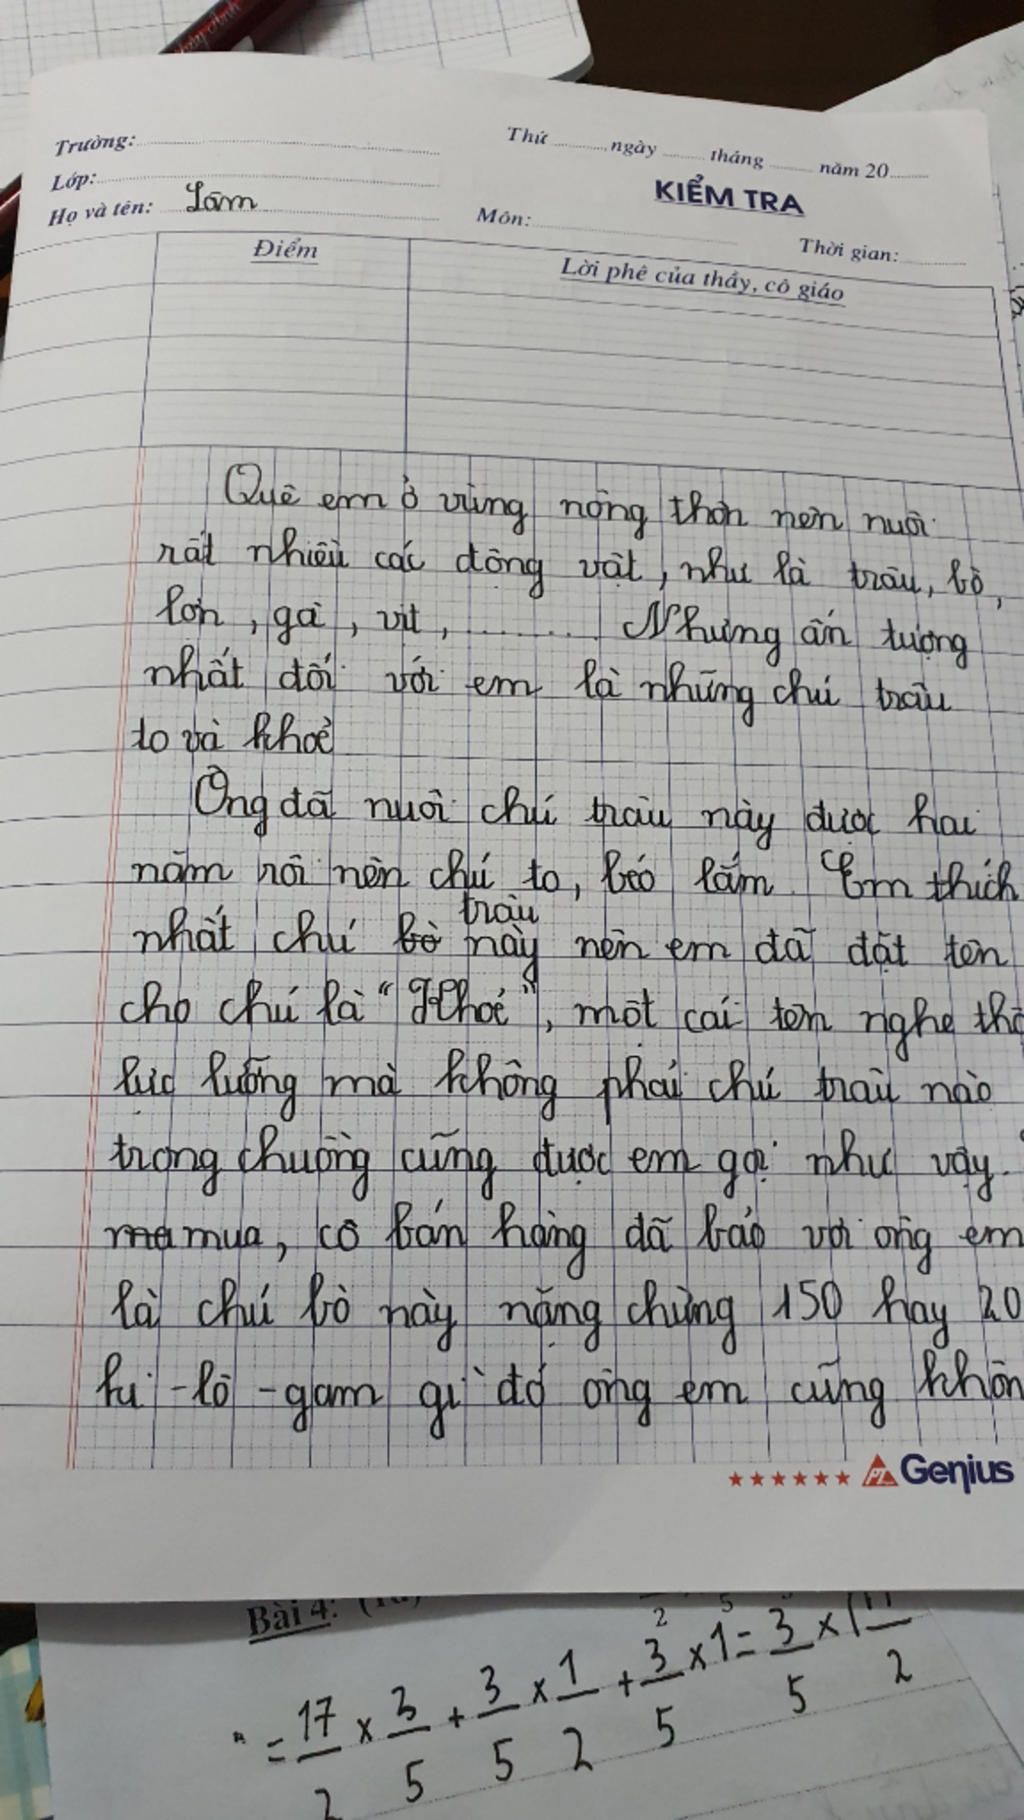 Trường:
Thứ ......... ngày ........ tháng ........ năm 20........
Lớp:
Họ và tên: Lâm
KIỂM TRA
Môn:
Thời gian:
Điểm
Lời phê của thầy, cô giáo
Quê em ở vùng nông thôn nên nuôi
rất nhiều các động vật, như là trâu, bò,
lợn, gà, vịt, .......... Nhưng ấn tượng
nhất đối với em là những chú trâu
to và khoẻ
Ông đã nuôi chú trâu này được hai
năm rồi nên chú to, béo lắm. Em thích
trâu
nhất chú bò này nên em đã đặt tên
cho chú là "Khoẻ", một cái tên nghe
lực lưỡng mà không phải chú trâu nào
trong chuồng cũng được em gọi như vậy.
mua, cô bán hàng đã bảo với ông em
là chú bò này nặng chừng 150 hay 20
ki-lô-gam gì đó ông em cũng
PL Genius
Bài 4:
= 17/2 × 3/5 + 3/5 × 1/2 + 3/5 × 1 = 3/5 ×